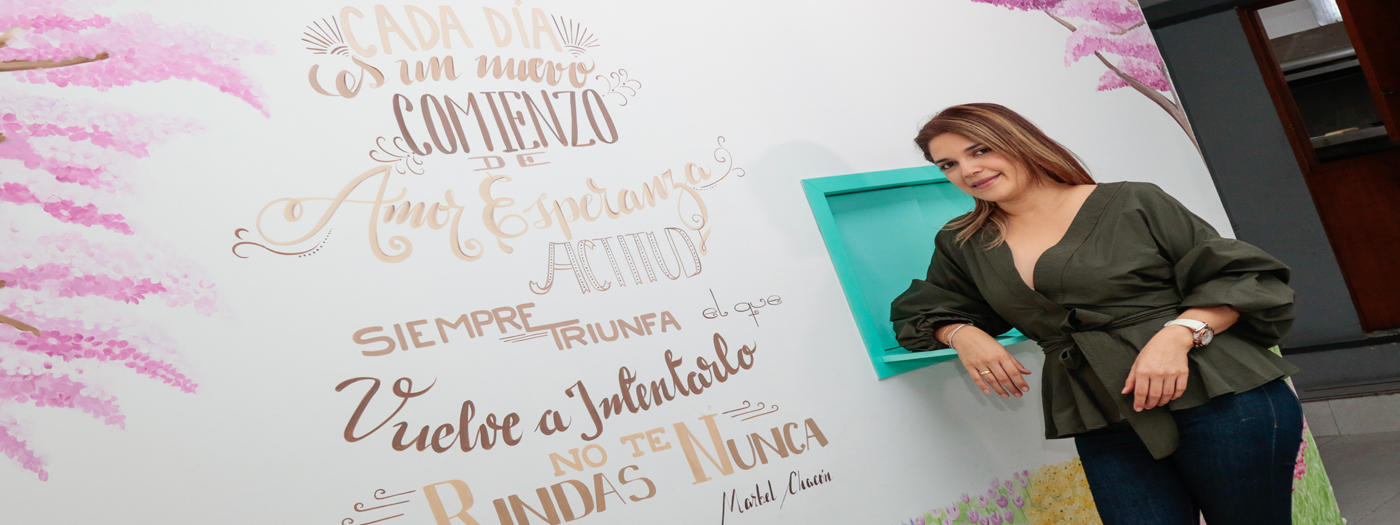 CADA DÍA
es un nuevo
COMIENZO
DE
Amor Esperanza
ACTITUD
SIEMPRE TRIUNFA el que
Vuelve a Intentarlo
NO TE
RINDAS NUNCA
Markel Chacón